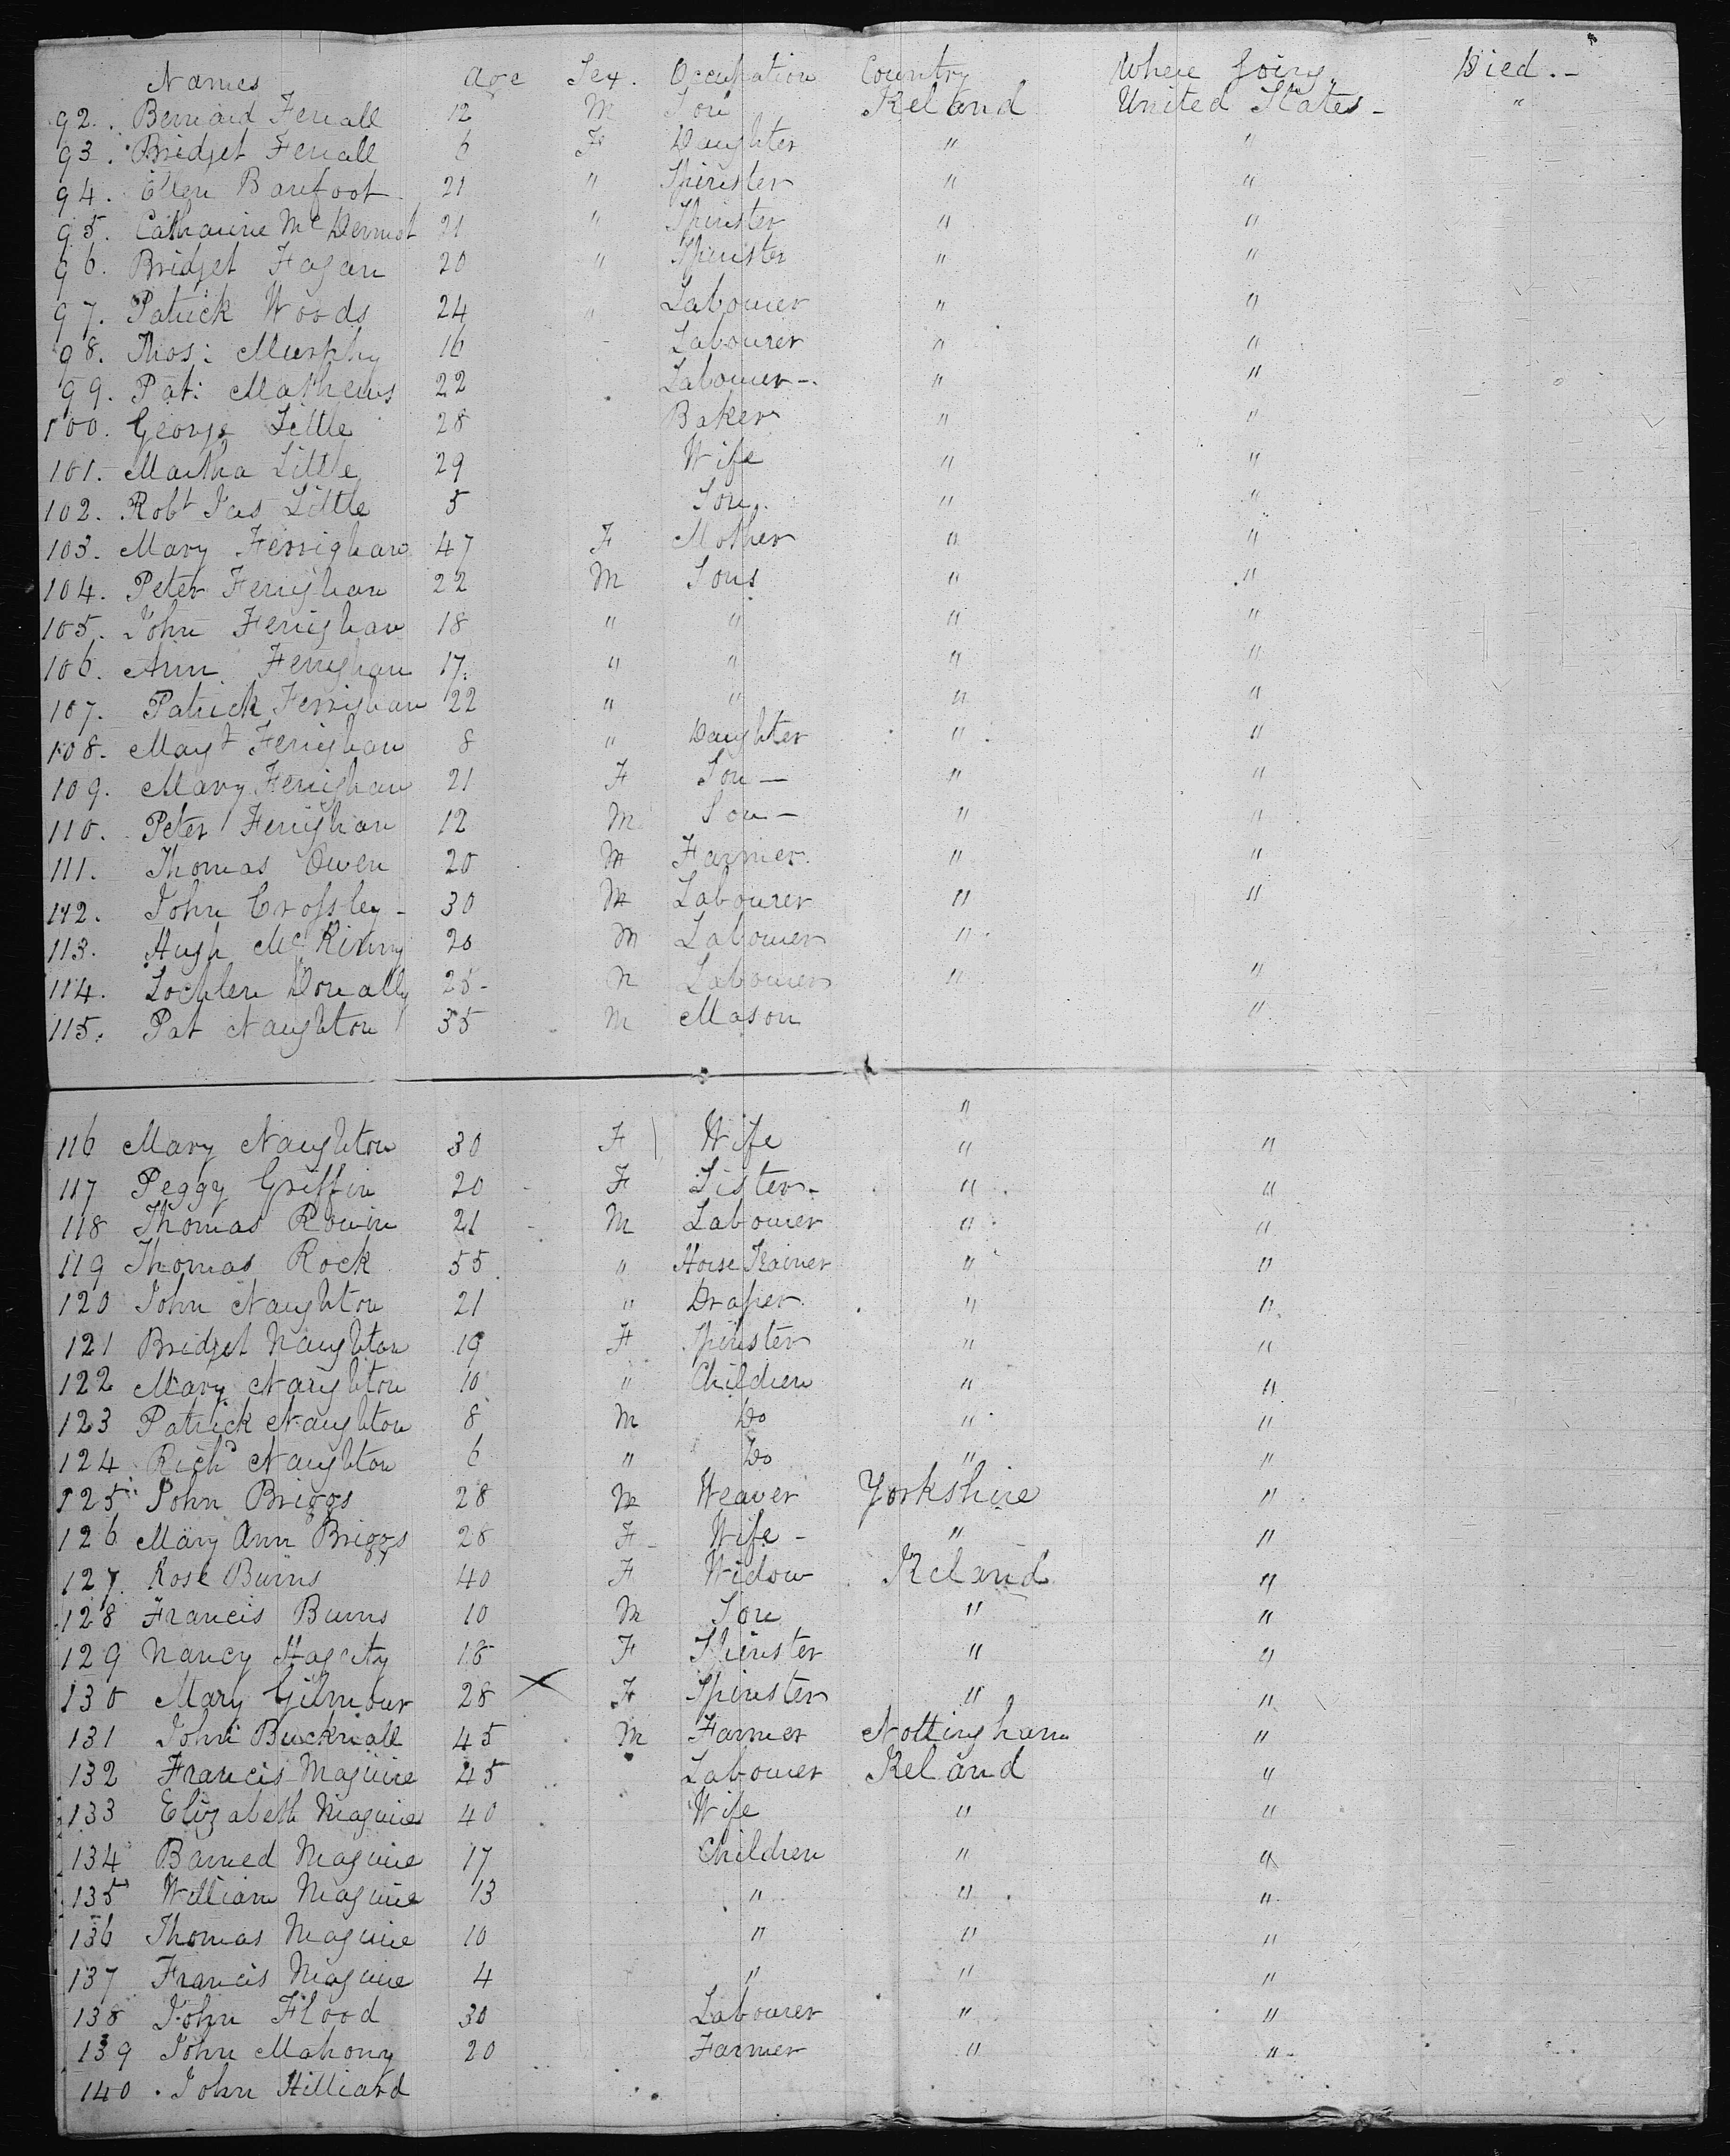 Names Age Sex. Occupation Country Where Going Died.-
92. Bernard Ferrall 12 M Son Ireland United States- "
93. Bridget Ferrall 6 F Daughter " "
94. Ellen Barefoot 21 " Spinster " "
95. Catharine McDermot 21 " Spinster " "
96. Bridget Fagan 20 " Spinster " "
97. Patrick Woods 24 " Labourer " "
98. Thos: Murphy 16 Labourer " "
99. Pat: Mathews 22 Labourer-. " "
100. George Little 28 Baker " "
101. Martha Little 29 Wife " "
102. Robt Jas Little 5 Son. " "
103. Mary Ferrighan 47 F Mother " "
104. Peter Ferrighan 22 M Sons " "
105. John Ferrighan 18 " " " "
106. Ann Ferrighan 17. " " " "
107. Patrick Ferrighan 22 " " " "
108. Magt Ferrighan 8 " Daughter " "
109. Mary Ferrighan 21 F Son- " "
110. Peter Ferrighan 12 M Son- " "
111. Thomas Owen 20 M Farmer " "
112. John Crossley- 30 M Labourer " "
113. Hugh McKinny 20 M Labourer "
114. Lochlen Donally 25- M Labourer " "
115. Pat Naughton 35 M Mason "
"
116 Mary Naughton 30 F Wife " "
117 Peggy Griffin 20 F Sister- " "
118 Thomas Rowin 21 M Labourer " "
119 Thomas Rock 55 " Horse Trainer " "
120 John Naughton 21 " Draper " "
121 Bridget Naughton 19 F Spinster " "
122 Mary Naughton 10 " Children " "
123 Patrick Naughton 8 M Do " "
124 Richd Naughton 6 " Do " "
125 John Briggs 28 M Weaver Yorkshire "
126 Mary Ann Briggs 28 F Wife- " "
127. Rose Burns 40 F Widow Ireland "
128 Francis Burns 10 M Son " "
129 Nancy Hagerty 18 F Spinster " "
130 Mary Gilmour 28 X F Spinster " "
131 John Bucknall 45 M Farmer Nottingham "
132 Francis Maguire 45 Labourer Ireland "
133 Elizabeth Maguire 40 Wife " "
134 Barned Maguire 17 Children " "
135 William Maguire 13 " " "
136 Thomas Maguire 10 " " "
137 Francis Maguire 4 " " "
138 John Flood 30 Labourer " "
139 John Mahony 20 Farmer " "
140. John Hilliard